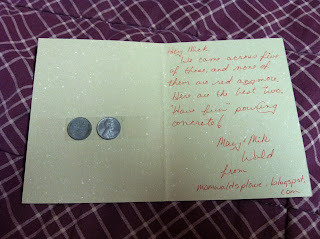 Hey Mick
We came across five
of these, and none of
them are red anymore.
Here are the best two.
"Have fun" pouring
concrete!
Mary + Mike
Wald
from
momwaldsplace.blogspot.
com